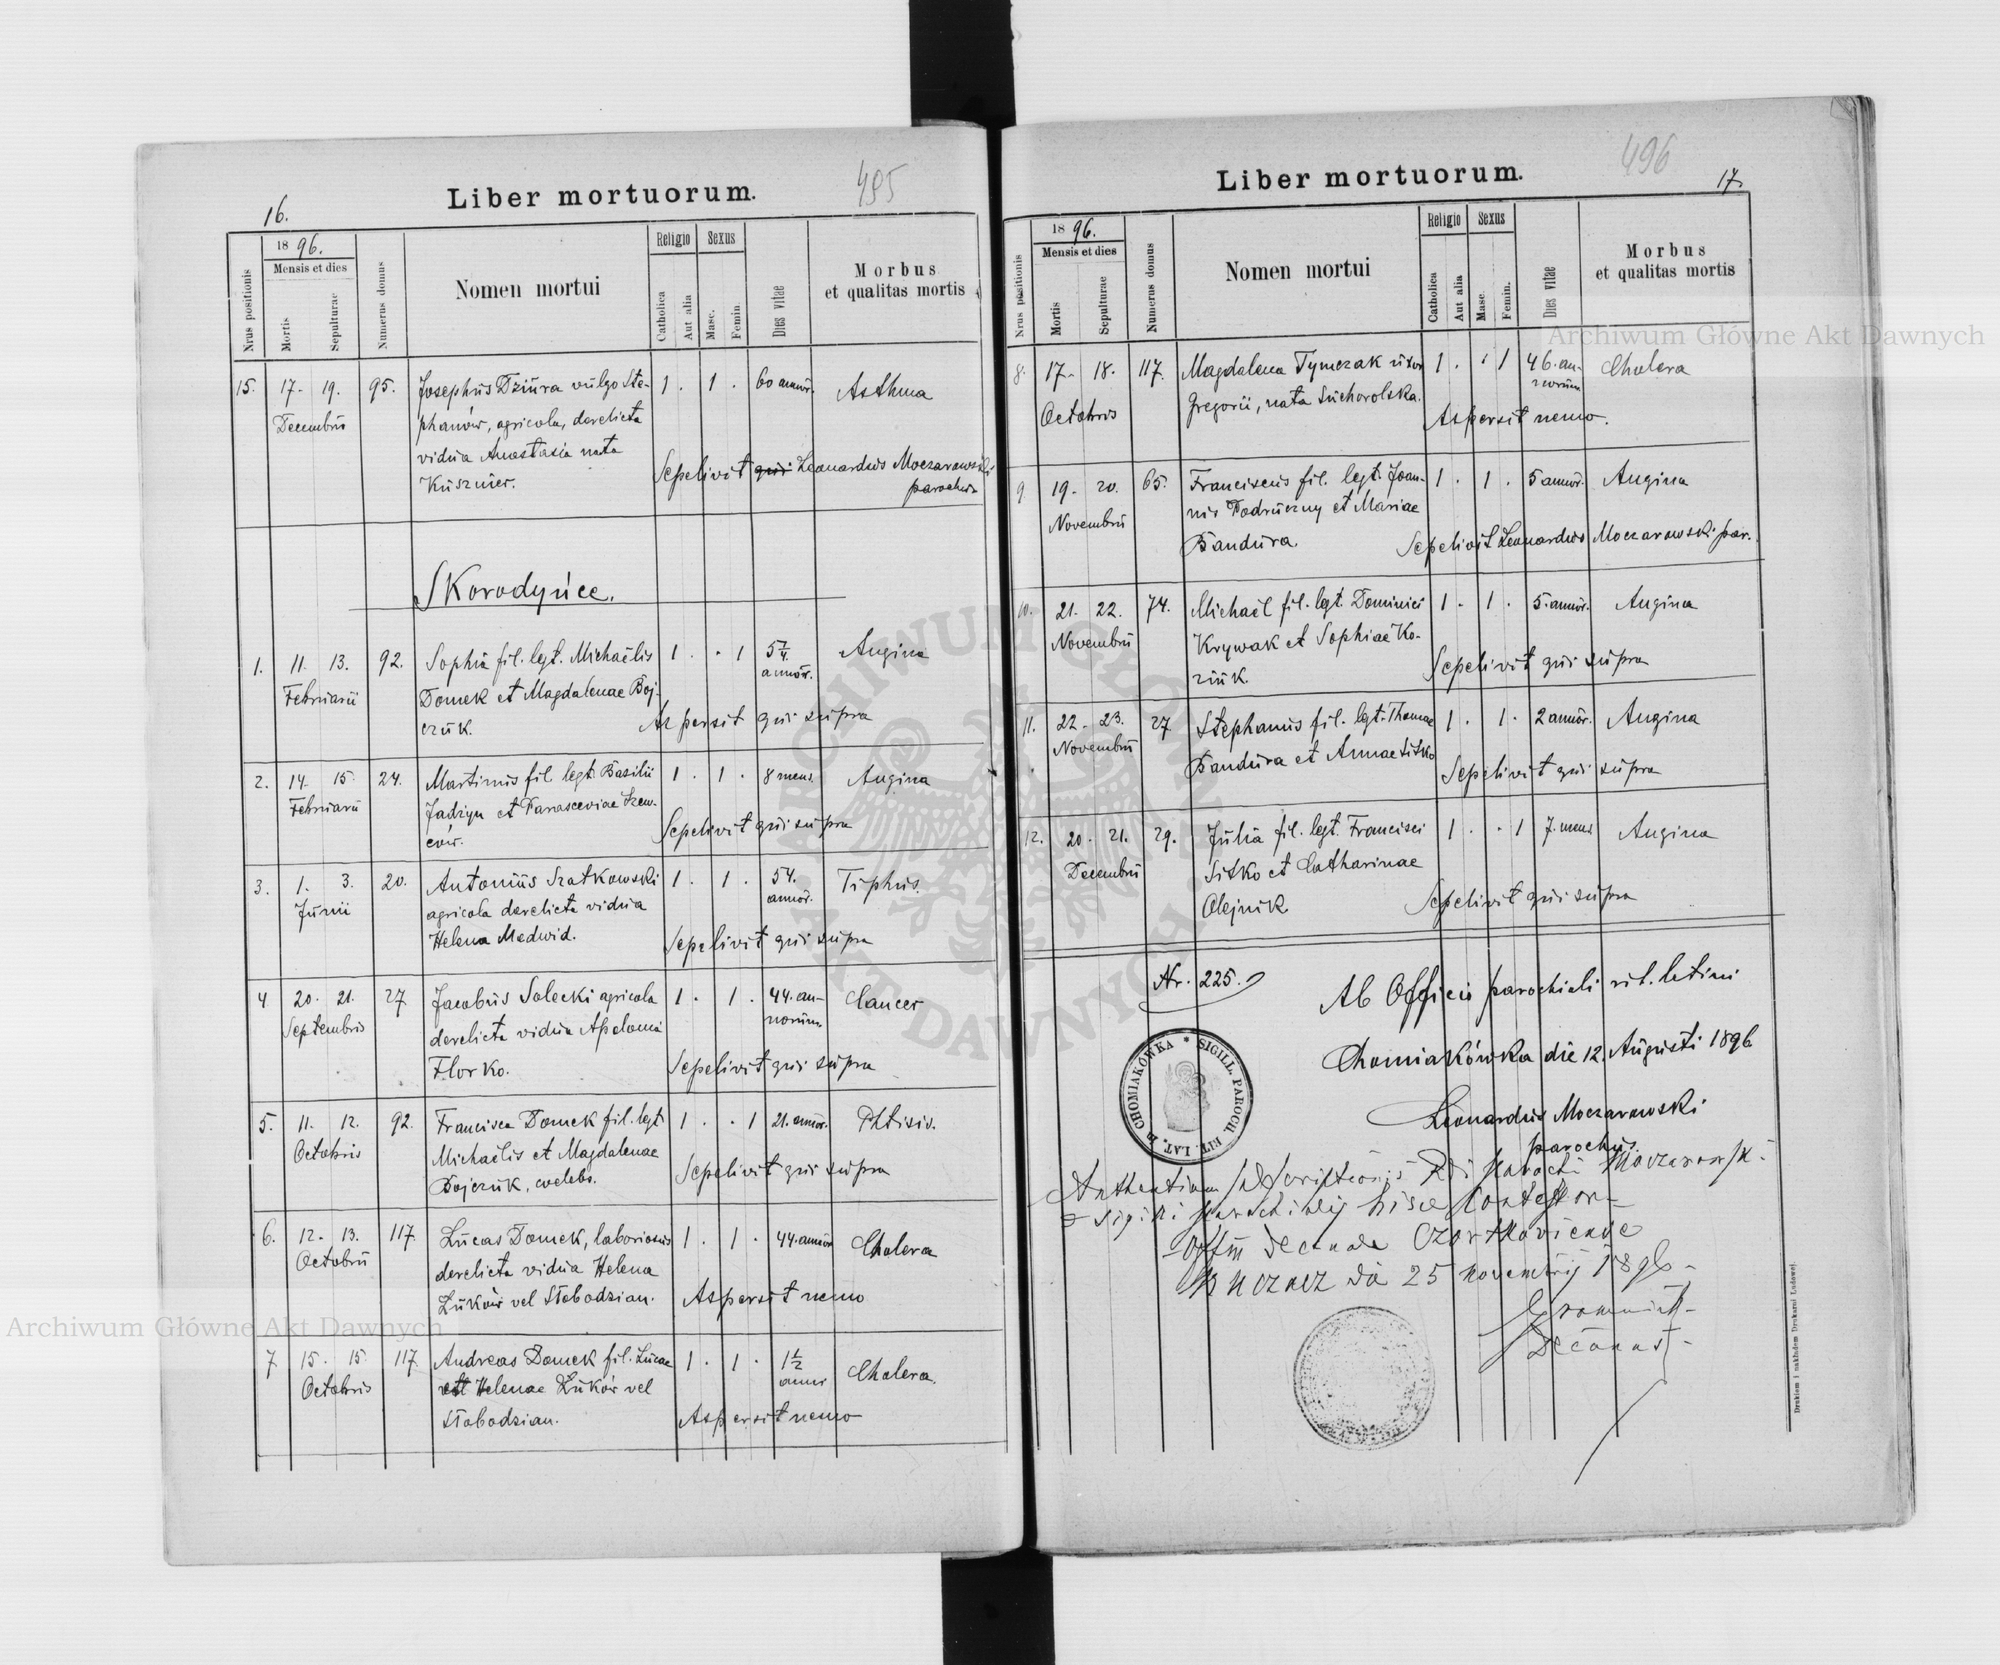 Liber mortuorum.
495
16.
Nrus positionis
18 96.
Mensis et dies
Mortis
Sepulturae
Numerus domus
Nomen mortui
Religio
Catholica
Aut alia
Sexus
Masc.
Femin.
Dies vitae
Morbus
et qualitas mortis
15. 17. 19. 95. Josephus Dziura vulgo Ste- 1 . 1 . 60 annor. Asthma
Decembris phanów, agricola, derelicta
vidua Anastasia nata Sepelivit qui Leonardus Moczarowski
Kusznier. parochus
Skorodyńce.
1. 11. 13. 92. Sophia fil. legt. Michaëlis 1 . . 1 5 7/4 Angina
Februarii Domek et Magdalenae Boj- annor.
czuk. Aspersit qui supra
2. 14. 15. 24. Martinus fil. legt. Basilii 1 . 1 . 8 mens. Angina
Februarii Jadzyn et Parasceviae Szew-
ców. Sepelivit qui supra
3. 1. 3. 20. Antonius Szatkowski 1 . 1 . 54. Tiphus.
Junii agricola derelicta vidua annor.
Helena Medwid. Sepelivit qui supra
4 20. 21. 27 Jacobus Solecki agricola 1 . 1 . 44. an- Cancer
Septembris derelicta vidua Apolonia norum
Florko. Sepelivit qui supra
5. 11. 12. 92. Francisca Domek fil. legt. 1 . . 1 21. annor. Phtisis.
Octobris Michaëlis et Magdalenae
Bojczuk, coelebs. Sepelivit qui supra
6. 12. 13. 117 Lucas Domek, laboriosus 1 . 1 . 44. annor Cholera
Octobris derelicta vidua Helena
Luków vel Słobodzian. Aspersit nemo
7 15. 15. 117 Andreas Domek fil. Lucae 1 . 1 . 1 1/2 Cholera.
Octobris et Helenae Luków vel anni
Słobodzian. Aspersit nemo
Liber mortuorum.
496
17.
Nrus positionis
18 96.
Mensis et dies
Mortis
Sepulturae
Numerus domus
Nomen mortui
Religio
Catholica
Aut alia
Sexus
Masc.
Femin.
Dies vitae
Morbus
et qualitas mortis
8. 17. 18. 117. Magdalena Tymczak uxor 1 . . 1 46. an- Cholera
Octobris Gregorii, nata Suchorolska. norum
Aspersit nemo.
9. 19. 20. 65. Franciscus fil. legt. Joan- 1 . 1 . 5 annor. Angina
Novembris nis Podruczny et Mariae
Bandura. Sepelivit Leonardus Moczarowski par.
10. 21. 22. 74. Michaël fil. legt. Dominici 1 . 1 . 5. annor. Angina
Novembris Krywak et Sophiae Ko-
ziuk. Sepelivit qui supra
11. 22. 23. 27 Stephanus fil. legt. Thomae 1 . 1 . 2 annor. Angina
Novembris Bandura et Annae Sitko
Sepelivit qui supra
12. 20. 21. 29. Julia fil. legt. Francisci 1 . . 1 7. mens. Angina
Decembris Sitko et Catharinae
Olejnik Sepelivit qui supra
Nr. 225.
Ab Officio parochiali rit. latini
Chomiakówka die 12. Augusti 1896
Leonardus Moczarowski
parochus.
SIGILL. PAROCH. RIT. LAT. IN CHOMIAKÓWKA *
Rdi parochi Moczarowski
sigilli parochialis hisce contestor
Offm Decanale Czortkoviense
25 Novembris 1896
Decanus
Drukiem i nakładem Drukarni Ludowej.
Archiwum Główne Akt Dawnych
Archiwum Główne Akt Dawnych
ARCHIWUM GŁÓWNE AKT DAWNYCH